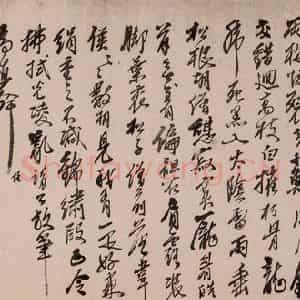 交錯迴高枝白摧朽骨龍
虎死黑入太陰雷雨垂
松根胡僧憩寂寞龐眉皓
首無住著偏袒右肩露雙
脚葉裏松子僧前落韋
侯々數相見我有一匹好東
絹重之不減錦繡段已令
拂拭光凌亂請公放筆
為直幹